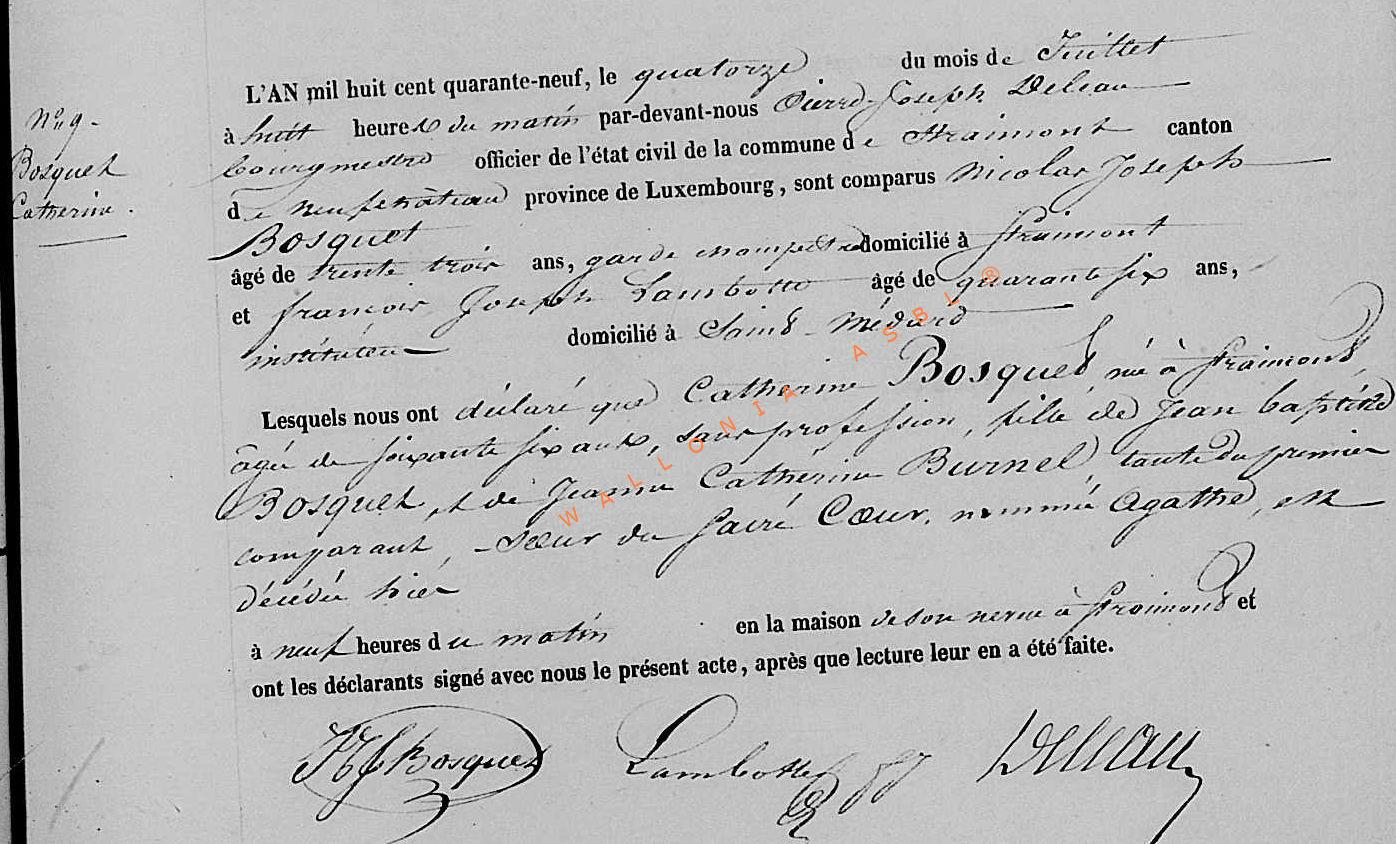 N° 9 -
Bosquet
Catherine.
L'AN mil huit cent quarante-neuf, le quatorze du mois de Juillet
à huit heures du matin par-devant-nous Pierre-Joseph Deleau
bourgmestre officier de l'état civil de la commune de Straimont canton
de neufchâteau province de Luxembourg, sont comparus Nicolas Joseph
Bosquet
âgé de trente trois ans, garde champêtre domicilié à Straimont
et francois Joseph Lambotte âgé de quarante six ans,
instituteur domicilié à Saint-Médard
Lesquels nous ont déclaré que Catherine Bosquet, née à Straimont,
âgée de soixante six ans, sans profession, fille de Jean baptiste
Bosquet, et de Jeanne Catherine Burnel, tante du premier
comparant, - Sœur du Sacré Cœur, nommée Agathe, est
décédée hier
à neuf heures du matin en la maison de son neveu à Straimont et
ont les déclarants signé avec nous le présent acte, après que lecture leur en a été faite.
Bosquet Lambotte Deleau
WALLONIA ASBL ®